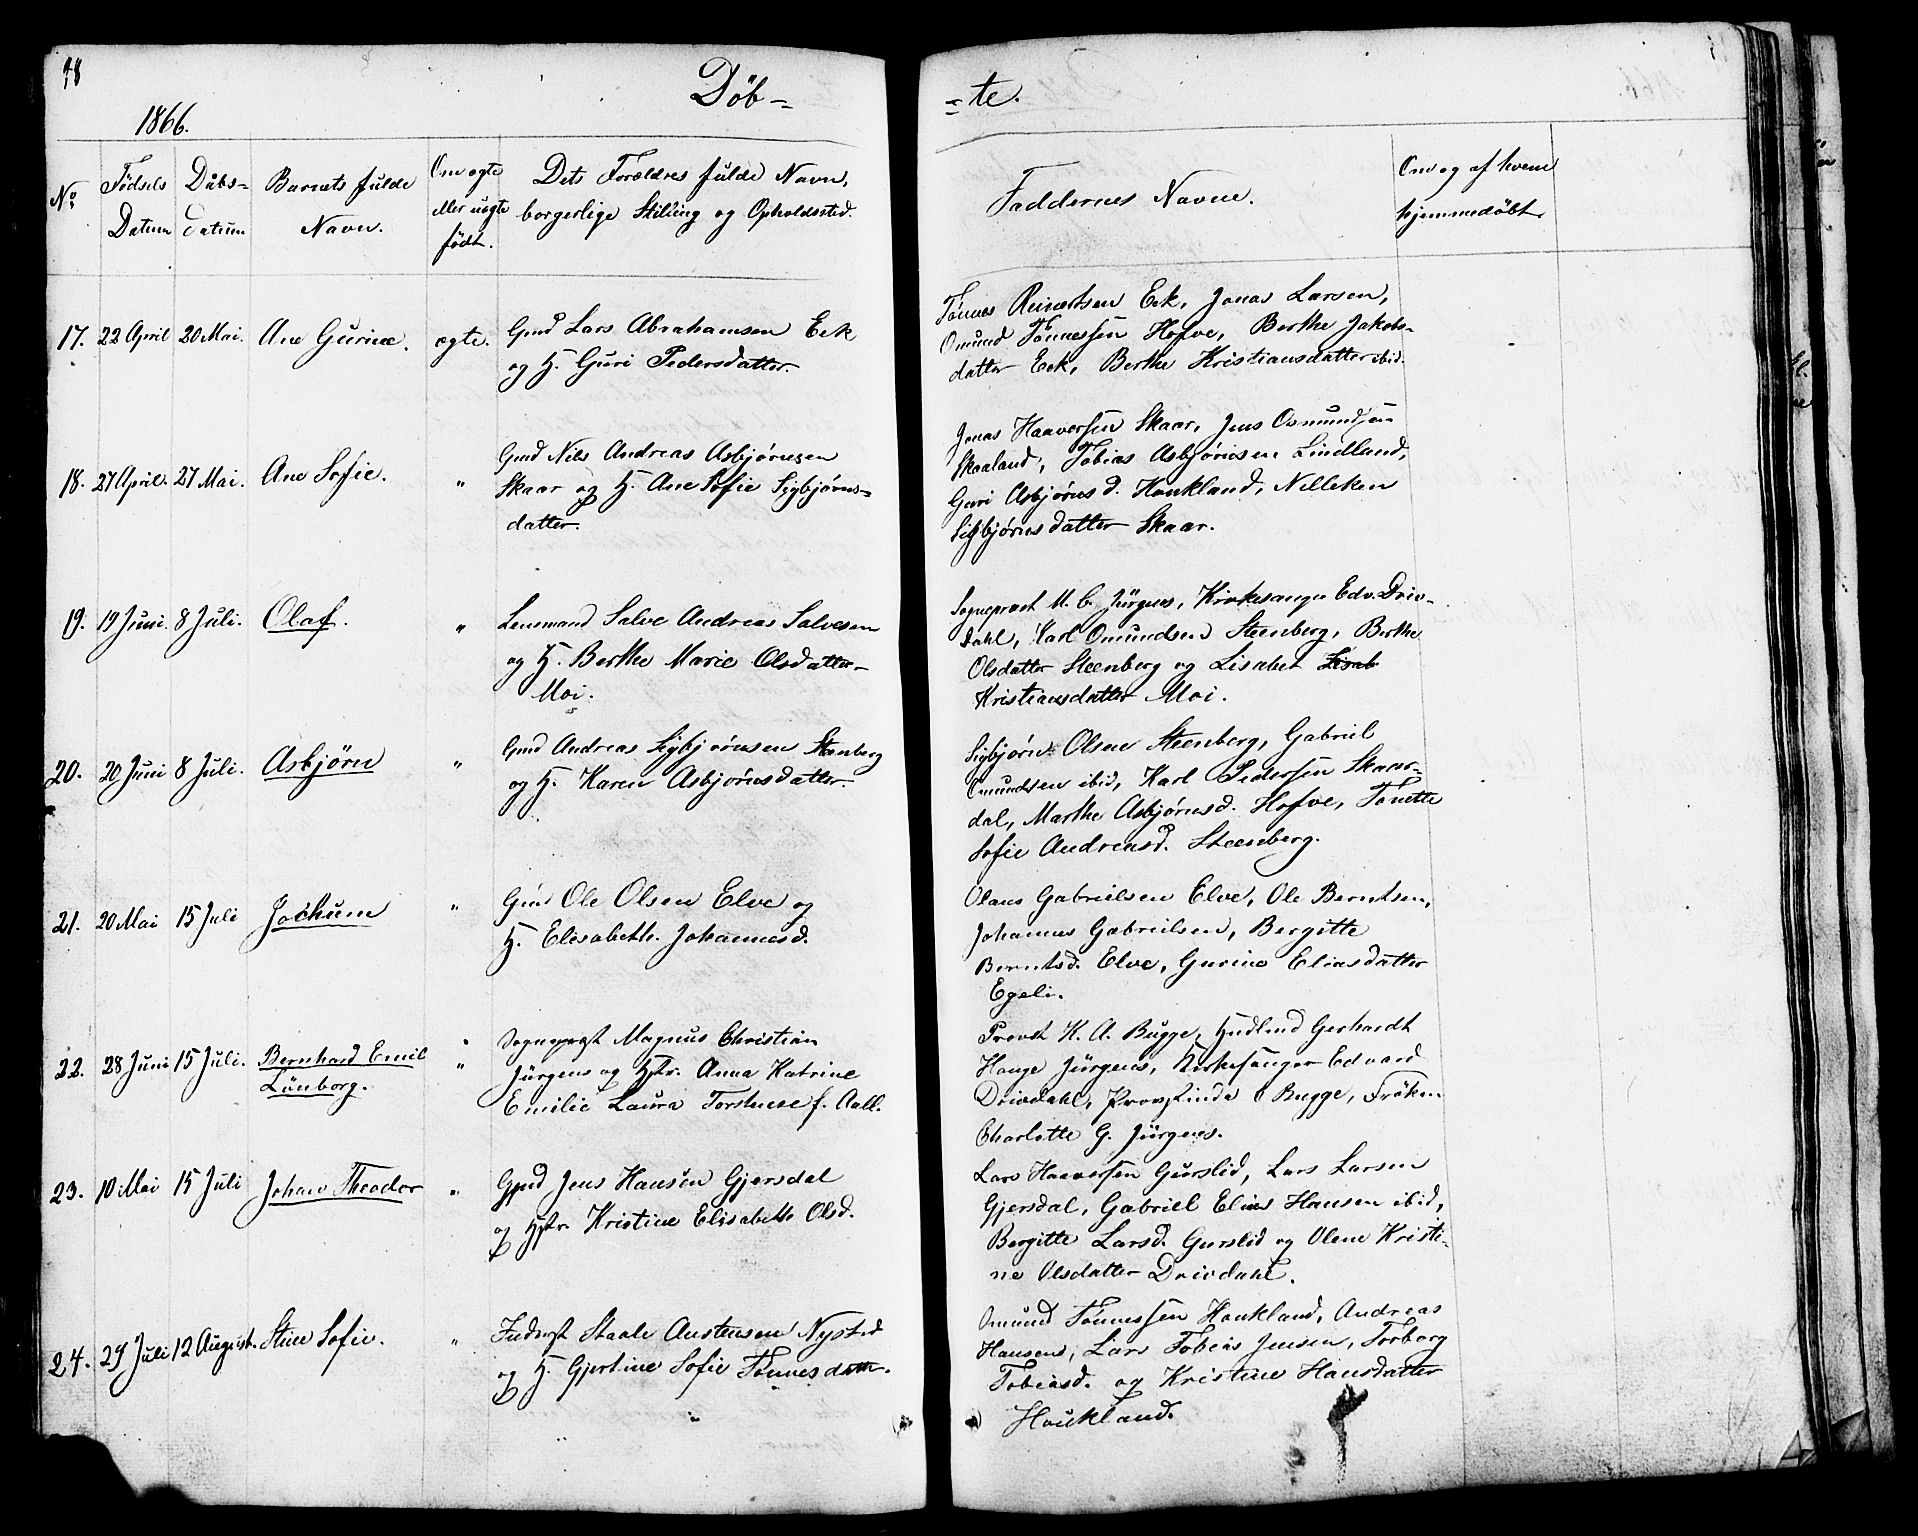 98
Döb-
-te.
1866.
No
Fødsels
Datum
Dåbs-
datum
Barnets fulde
Navn.
Om ægte
eller uægte
født.
Dets Forældres fulde Navn,
borgerlige Stilling og Opholdssted.
Faddernes Navne.
Om og af hvem
hjemmedøbt.
17. 22 April 20 Mai. Ane Gurine. ægte. Gmd Lars Abrahamsen Eek
og H. Guri Pedersdatter.
Tønnes Reinertsen Eek, Jonas Larsen,
Omund Tønnessen Hofve, Berthe Jakobs-
datter Eek, Berthe Kristiansdatter ibid.
18. 27 April. 27 Mai. Ane Sofie. " Gmd Nils Andreas Asbjørnsen
Skaar og H. Ane Sofie Sigbjørns-
datter.
Jonas Haaversen Skaar, Jens Osmundsen
Skaaland, Tobias Asbjørnsen Lindland,
Guri Asbjørnsd. Houkland, Nilleken
Sigbjørnsdatter Skaar.
19. 19 Juni. 8 Juli. Olaf. " Lensmand Salve Andreas Salvesen
og H. Berthe Marie Olsdatter
Moi.
Sognepræst M. C. Jürgens, Kirkesanger Edv. Driv-
dahl, Karl Omundsen Steenberg, Berthe
Olsdatter Steenberg og Lisabet Lisab
Kristiansdatter Moi.
20. 20 Juni 8 Juli. Asbjörn " Gmd Andreas Sigbjørnsen Stenberg
og H. Karen Asbjørnsdatter.
Sigbjørn Olsen Steenberg, Gabriel
Omundsen ibid, Karl Pedersen Skaar-
dal, Marthe Asbjørnsd. Hofve, Tonette
Sofie Andreasd. Steenberg.
21. 20 Mai 15 Juli Jochum " Gmd Ole Olsen Elve og
H. Elisabeth Johannesd.
Olaus Gabrielsen Elve, Ole Berntsen,
Johannes Gabrielsen, Bergitte
Berntsd. Elve, Gurine Eliasdatter
Egeli.
22. 28 Juni 15 Juli. Bernhard Emil
Lünborg. " Sognepræst Magnus Christian
Jürgens og Hstr. Anna Katrine
Emilie Laura Torstense f. Aall.
Provst K. A. Bugge, Gerhardt
Hange Jürgens, Kirkesanger Edvard
Drivdahl, Provstinde C Bugge, Frøken
Charlotte G. Jürgens.
23. 10 Mai 15 Juli Johan Theodor " Gmd Jens Hansen Gjersdal
og Hstr. Kristine Elisabeth Olsd.
Lars Haaversen Gurslid, Lars Larsen
Gjersdal, Gabriel Elias Hansen ibid,
Bergitte Larsd. Gurslid og Olene Kristi-
ne Olsdatter Drivdahl.
24. 29 Juli 12 August. Stine Sofie. " Inderst Staale Austensen Nysted
og H. Gjertine Sofie Tønnesdatter.
Omund Tønnessen Houkland, Andreas
Hansen, Lars Tobias Jensen, Torborg
Tobiasd. og Kristine Hansdatter
Houkland.